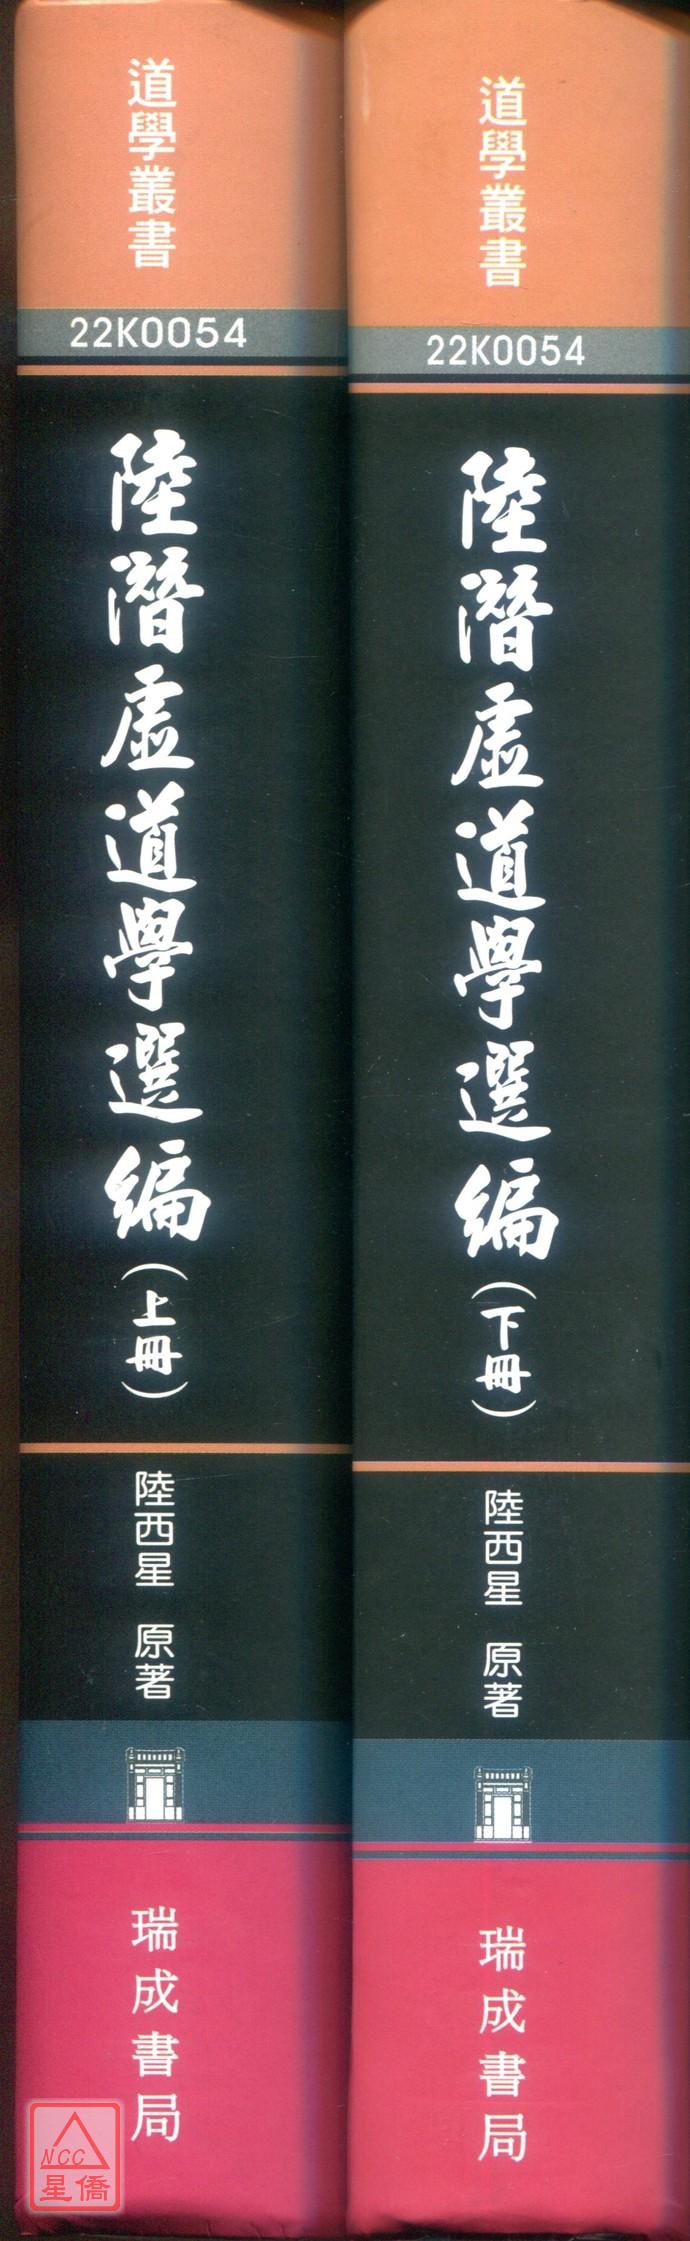 道學叢書
22K0054
陸潛虛道學選編(上冊)
陸西星 原著
瑞成書局
道學叢書
22K0054
陸潛虛道學選編(下冊)
陸西星 原著
瑞成書局
NCC
星僑